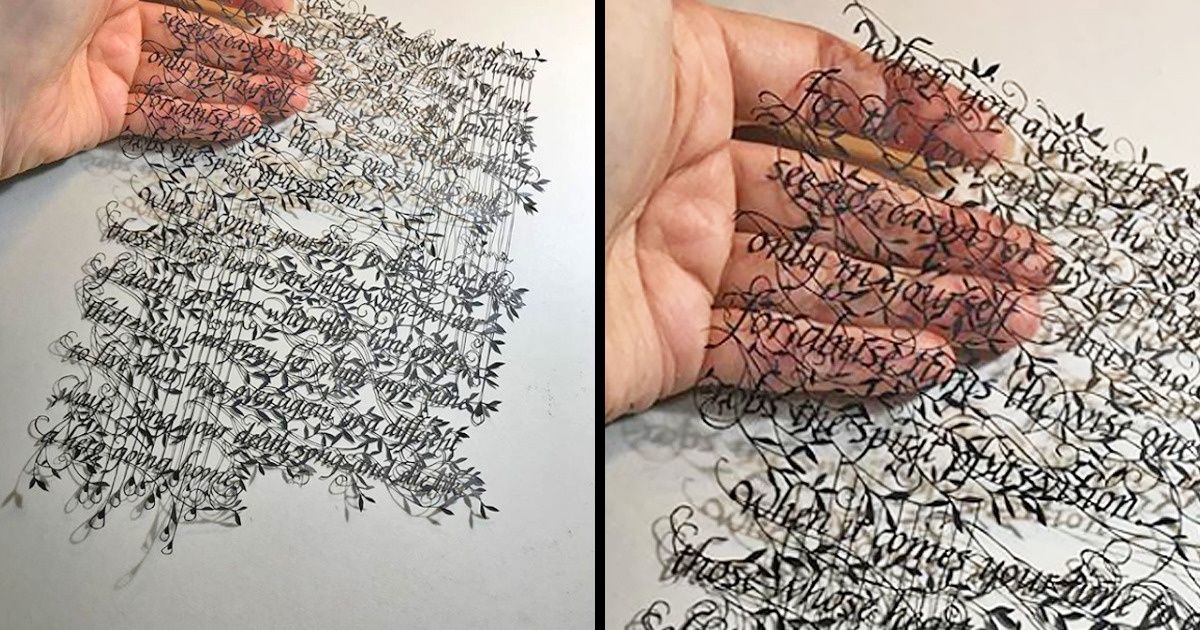 thanks
living. If you
see no reason for fault lies
only in yourself
for abuse the wise ones to fools and
robs the spirit of its vision.
when it comes your time to die, be not like
those whose hearts are filled with fear
of death, so that when their time comes
they weep and pray for a little more time
to live their lives over again in a different
way. Sing your death song and die like
a hero going home.
When you arise in the
for the food and for the joy
see no reason for
only in yourself
for abuse turns the wise ones
robs the spirit of its vision.
when it comes your time to
those whose hearts